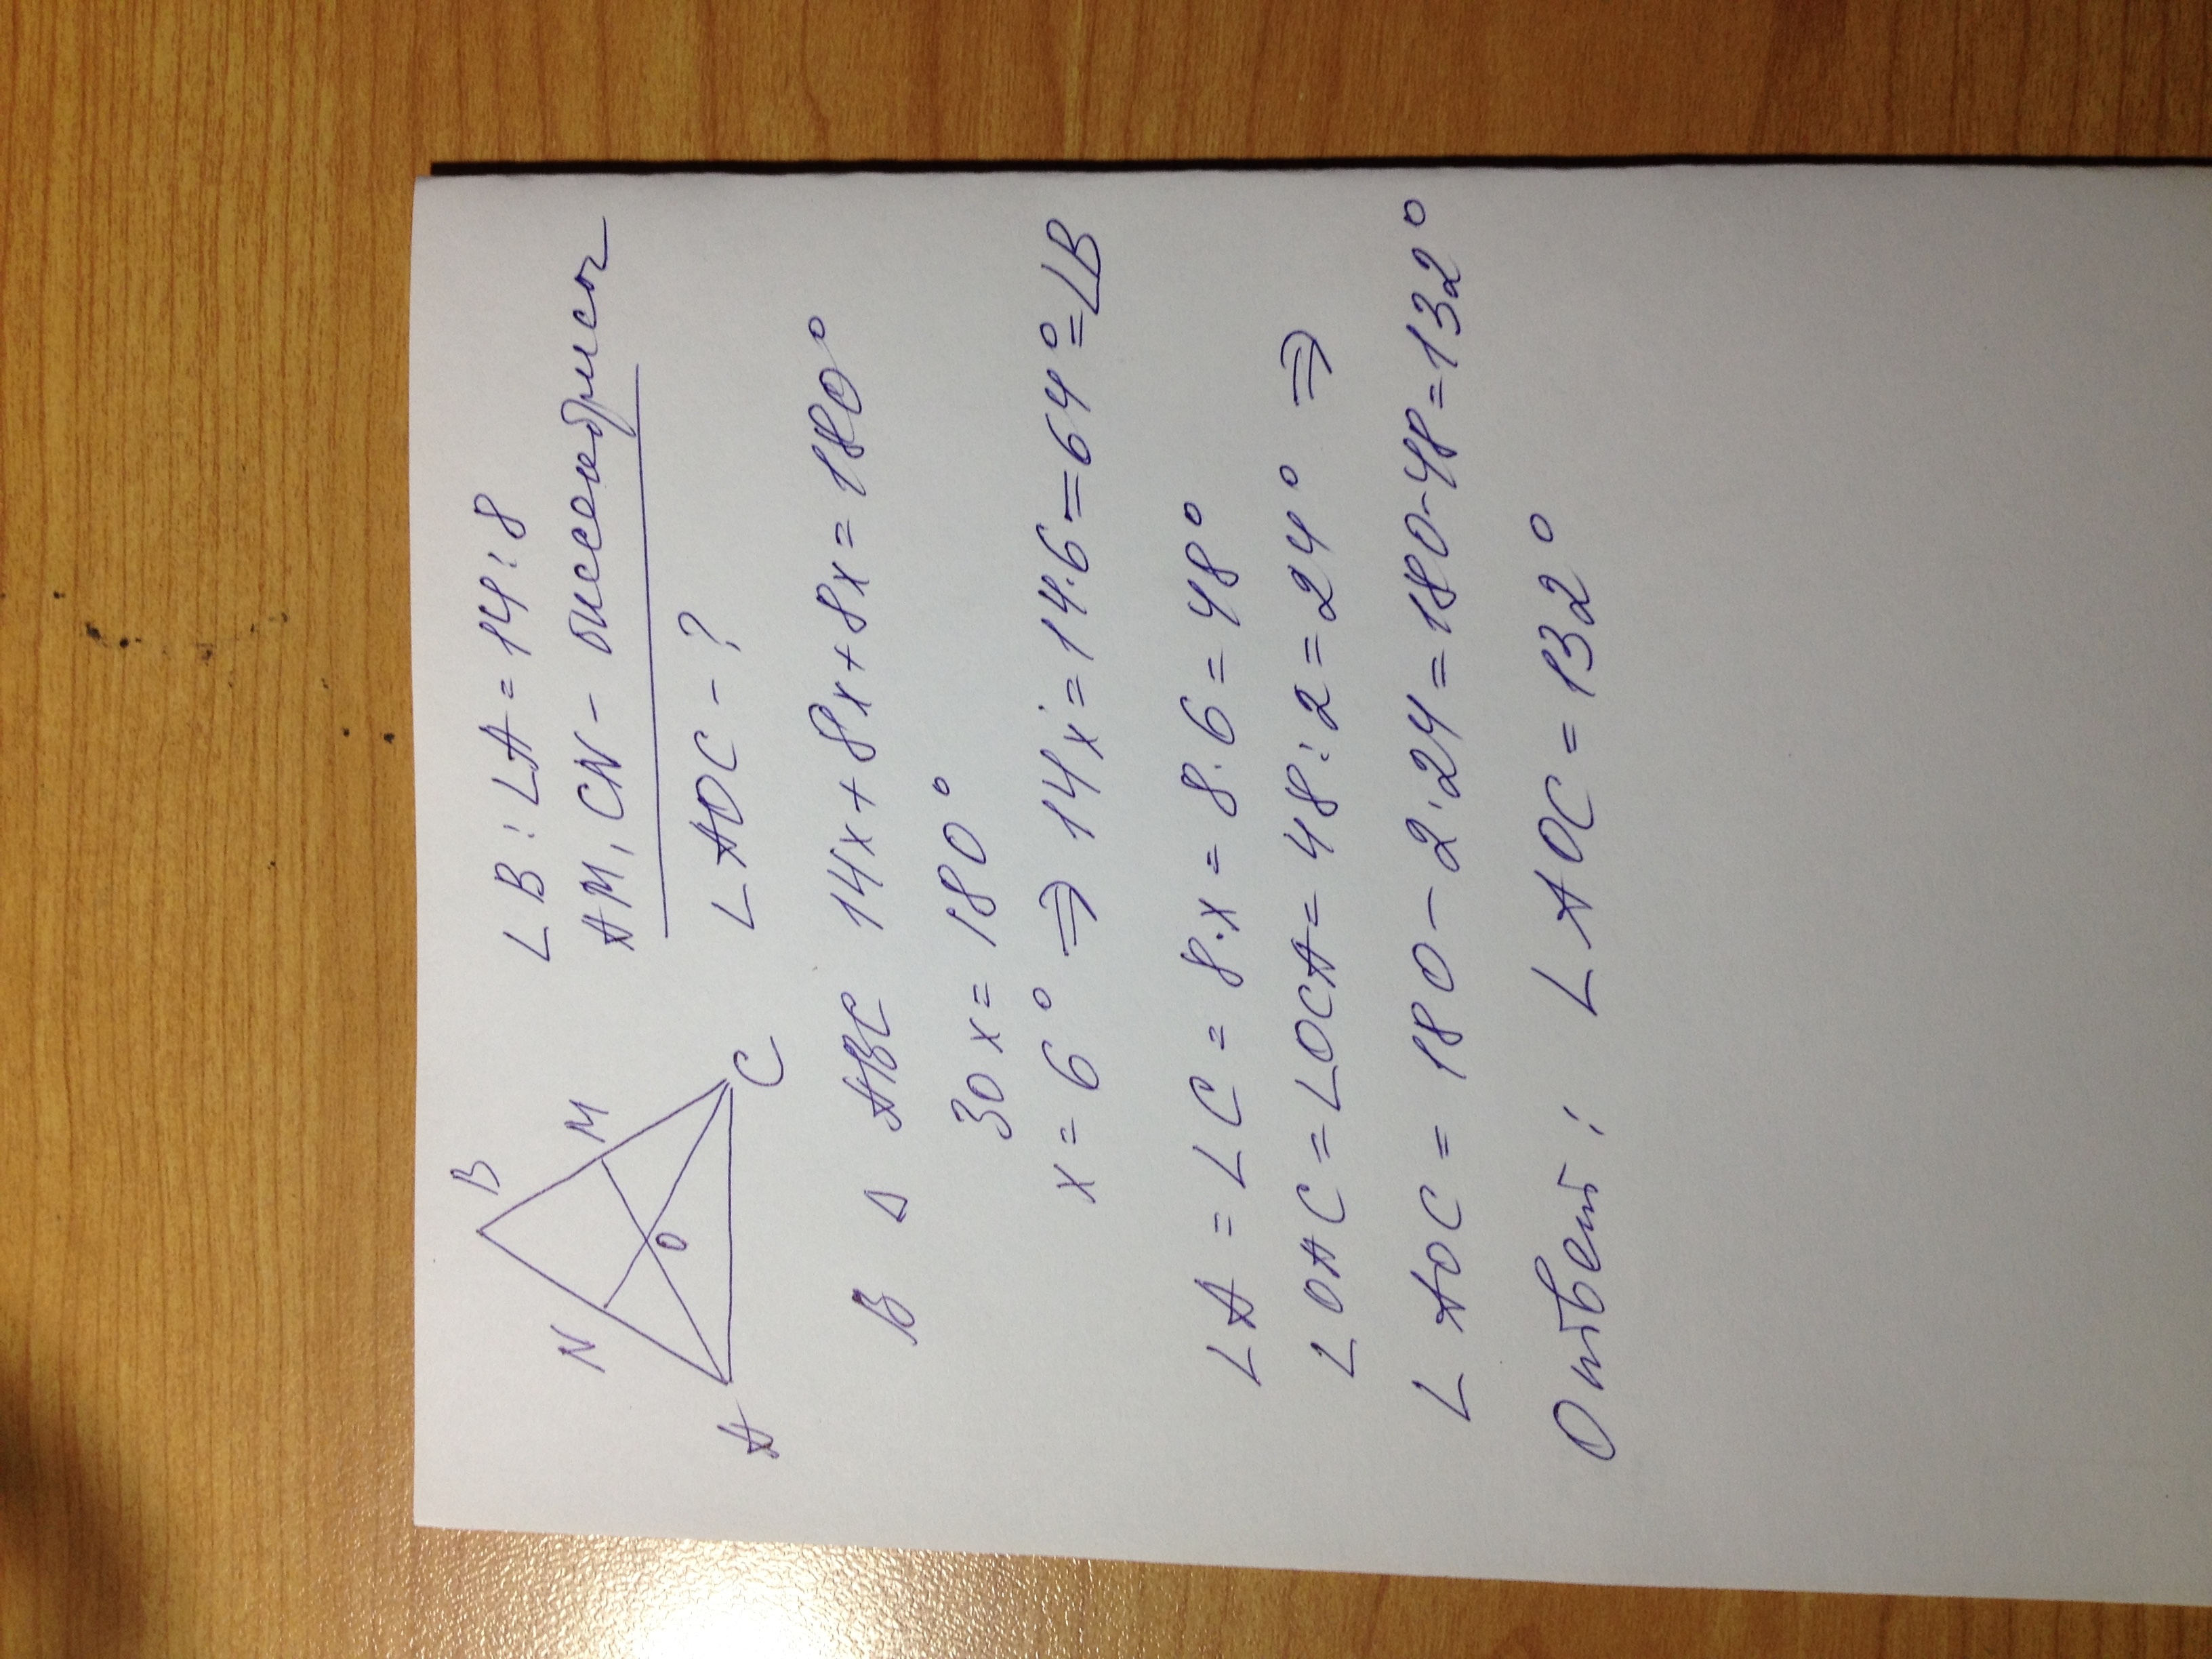 B
N
M
O
A
C
∠B : ∠A = 14 : 8
AM, CN - биссектрисы
∠AOC - ?
В Δ ABC 14x + 8x + 8x = 180°
30x = 180°
x = 6° ⇒ 14x = 14·6 = 64° = ∠B
∠A = ∠C = 8·x = 8·6 = 48°
∠OAC = ∠OCA = 48 : 2 = 24° ⇒
∠AOC = 180 - 2·24 = 180-48 = 132°
Ответ: ∠AOC = 132°